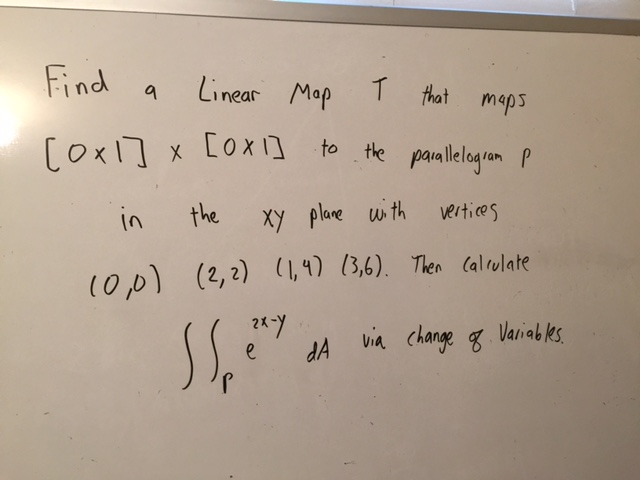 Find a Linear Map T that maps
[0x1] x [0x1] to the parallelogram P
in the xy plane with vertices
(0,0) (2,2) (1,4) (3,6). Then Calculate
∫∫_P e^{2x-y} dA via change of Variables.